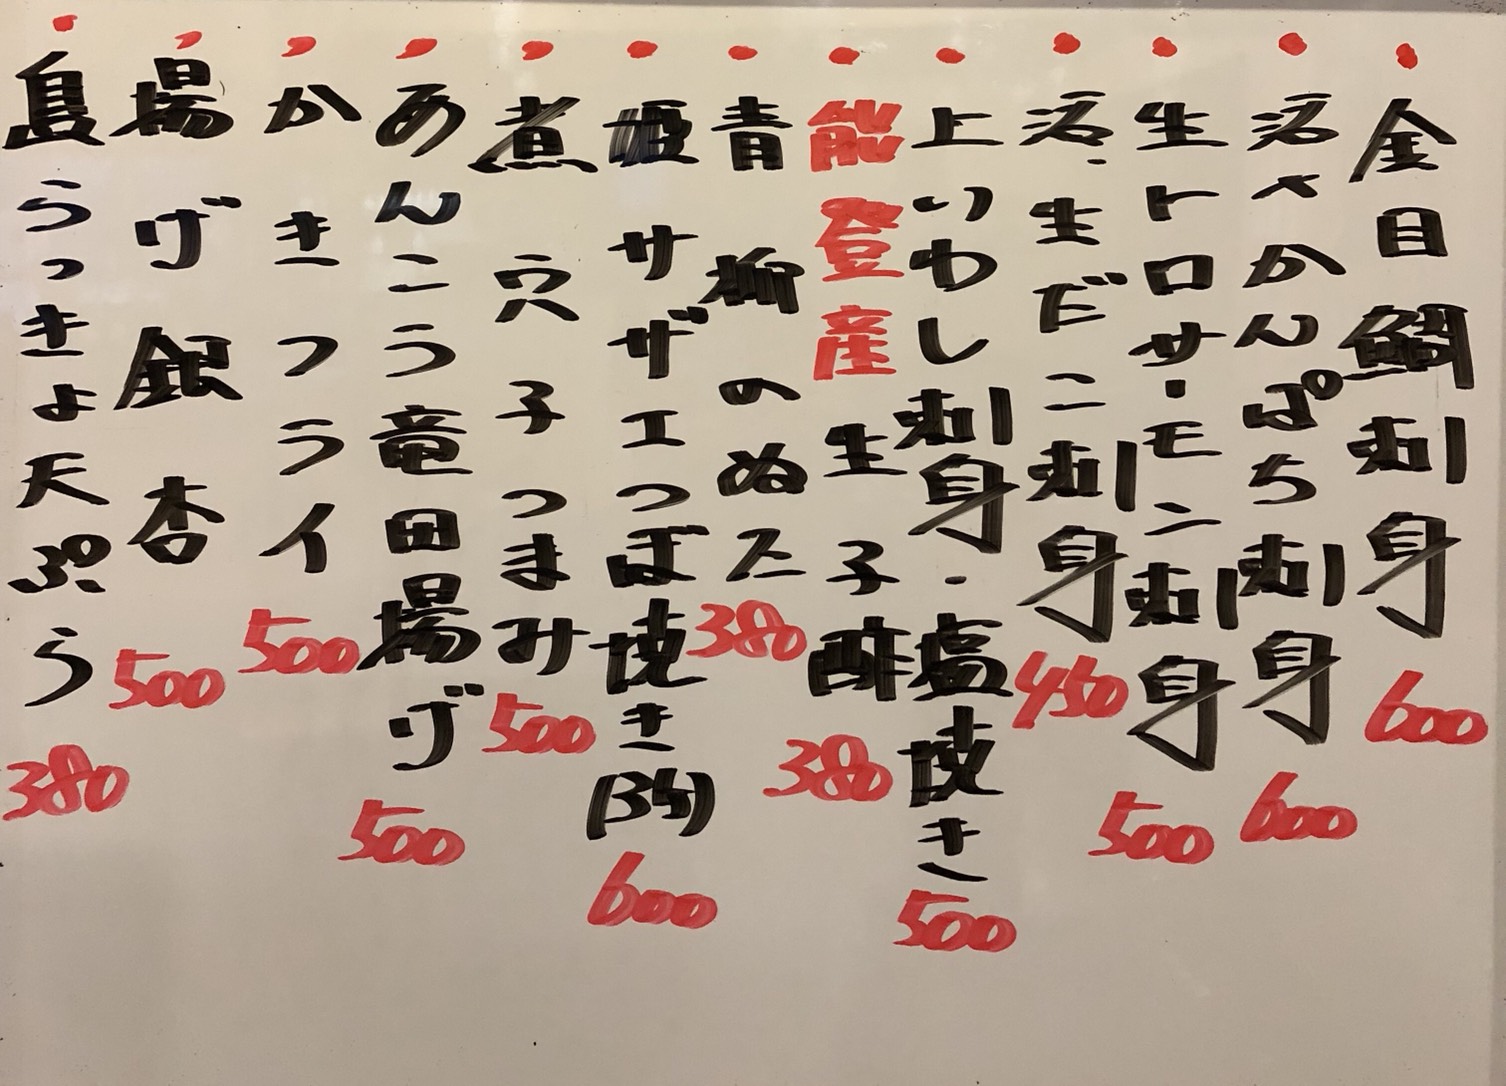 ・金目鯛刺身 600
・活〆かんぱち刺身 600
・生トロサーモン刺身 500
・活・生だこ刺身 450
・上いわし刺身・塩焼き 500
・能登産生子酢 380
・青柳のぬた 380
・姫サザエつぼ焼き(3ケ) 600
・煮穴子つまみ 500
・あんこう竜田揚げ 500
・かきフライ 500
・揚げ銀杏 500
・島らっきょ天ぷら 380